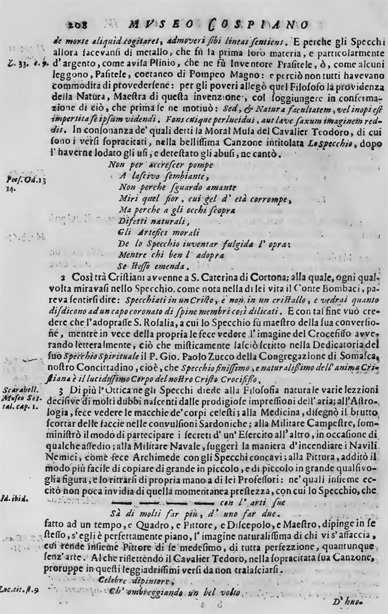 208 MVSEO COSPIANO
de morte aliquid cogitaret, admoveri sibi lineas sentiens. E perche gli Specchi
allora facevansi di metallo, che fù la prima loro materia, e particolarmente
L. 33. c. 9. d'argento, come avita Plinio, che ne fù Inventore Prasitele, ò, come alcuni
leggono, Pasitele, coetaneo di Pompeo Magno: e perciò non tutti havevano
commodità di provedersene: per gli poveri allegò quel Filosofo la providenza
della Natura, Maestra di questa invenzione, col soggiungere in confermazione
di ciò, che prima se ne motivò: Sed, & Natura facultatem, vel inopi est
impertita se ipsum videndi. Fons cuique perlucidus, aut leve saxum imaginem reddit.
In consonanza de' quali detti la Moral Musa del Cavalier Teodoro, di cui
sono i versi sopracitati, nella bellissima Canzone intitolata Lo specchio, dopo
l'haverne lodato gli usi, e detestato gli abusi, ne cantò.
Non per accrescer pompe
Pars. Od. 13 A lascivo sembiante,
Non perche sguardo amante
Miri quel fior, cui gel d'età corrompe,
Ma perche a gli occhi scopra
Difetti naturali,
Gli Artefici morali
De lo Specchio inventar fulgida l'opra:
Mentre chi ben l'adopra
Se stesso emenda.
2 Così trà Cristiani avvenne a S. Caterina di Cortona; alla quale, ogni qual
volta miravasi nello Specchio, come nota nella di lei vita il Conte Bombaci, pareva
sentirsi dire: Specchiati in un Cristo, e non in un cristallo, e vedrai quanto
disdicono ad un capo coronato di spine membri così dilicati. E con tal fine vuò credere
che l'adoprasse S. Rosalia, a cui lo Specchio fù maestro della sua conversione,
mentre in vece della propria le fece vedere l'imagine del Crocefisso avverando
letteralmente, ciò che misticamente lasciò scritto nella Dedicatoria del
suo Specchio Spirituale il P. Gio. Paolo Zucco della Congregazione di Somasca,
nostro Concittadino, cioè, che Specchio finissimo, e naturalissimo dell'anima Cristiana
è il lucidissimo Corpo del nostro Cristo Crocifisso.
Scarabell. Museo Settal. cap. 1. 3 Di più l'Ottica ne gli Specchi diede alla Filosofia naturale varie lezzioni
decisive di molti dubbi nascenti dalle prodigiose impressioni dell'aria; all'Astrologia,
fece vedere le macchie de' corpi celesti; alla Medicina, disegnò il brutto
scortar delle faccie nelle convulsioni Sardoniche; alla Militare Campestre, somministrò
il modo di partecipare i secreti d'un' Esercito all'altro, in occasione di
qualche assedio; alla Militare Navale, suggerì la maniera d'incendiare i Navili
Nemici, come fece Archimede con gli Specchi concavi; alla Pittura, additò il
modo più facile di copiare di grande in piccolo, e di piccolo in grande qualsivoglia
figura, e lo ritrarsi di propria mano a dei Professori: ne' quali insieme eccitò
non poca invidia di quella momentanea prestezza, con cui lo Specchio, che
Id. ibid. con l'arti sue
Sà di molti far più, d'uno far due.
fatto ad un tempo, e Quadro, e Pittore, e Discepolo, e Maestro, dipinge in se
stesso, s'egli è perfettamente piano, l'imagine naturalissima di chi vi s'affaccia,
cui rende insieme Pittore di se medesimo, di tutta perfezzione, quantunque
senz'arte. Al che riflettendo il Cavalier Tedoro, nella sopracitata sua Canzone,
proruppe in questi leggiadrissimi versi da non tralasciarsi.
Celebre dipintore,
Loc. cit. st. 9 Ch'ombreggiando un bel volto
D'huo-